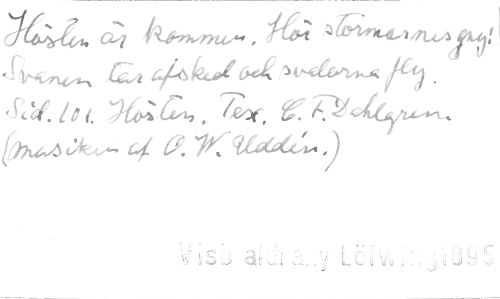 Hösten är kommen. Hör stormarnes gny!
Svanen tar afsked och svalorna fly.
Sid. 101. Hösten. Tex. C. F. Dahlgren.
(musiken af O. W. Uddén.)
1895